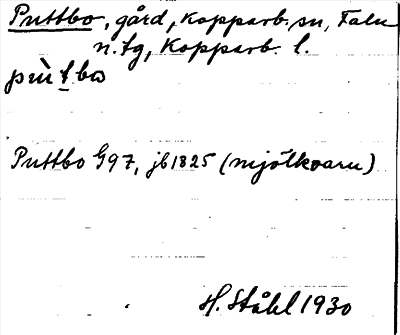 Puttbo, gård, Kopparb. sn, Falu
n. tg, Kopparb. l.
pùt bo
Puttbo G97, jb 1825 (mjölkvarn)
H. Ståhl 1930